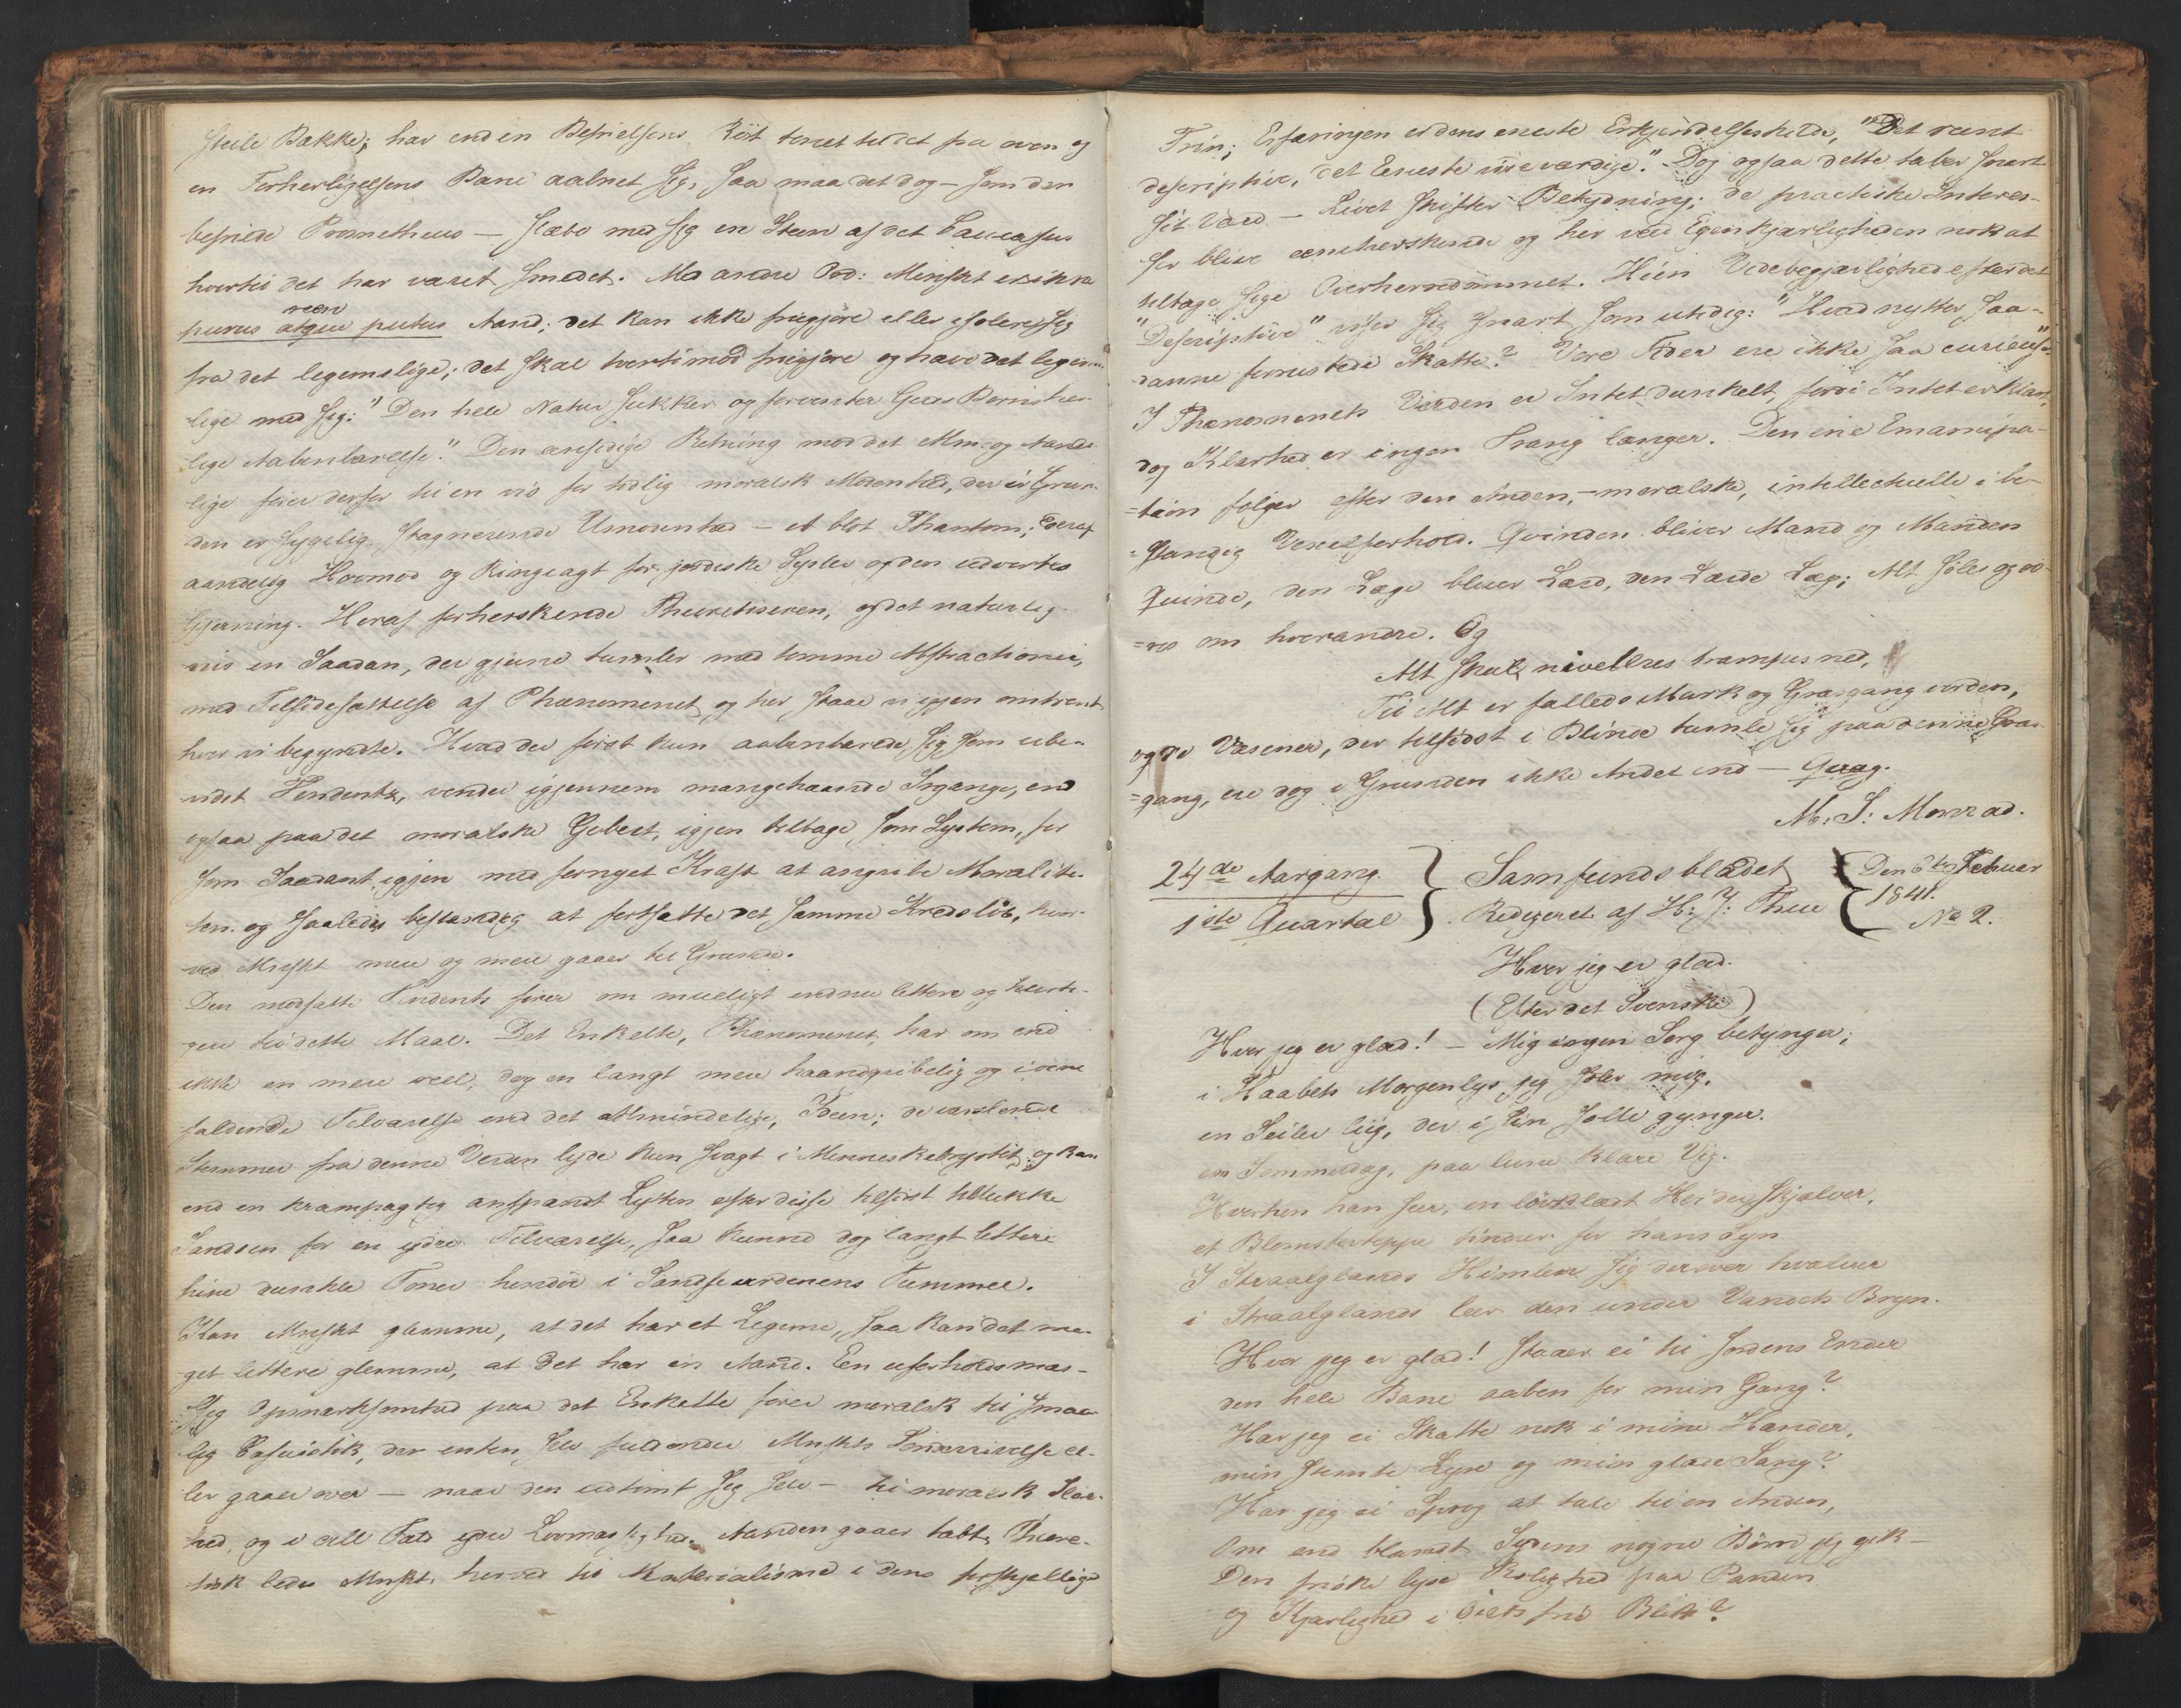 steile Bakke; har end en Befrielsens Röst tonet til det fra oven og
en Forherligelsens Bane aabnet sig, saa maa det dog – som den
befriede Prometheus – slæbe med sig en Steen af det Caucasus
hvortil det har været smedet. Med andre Ord: Mnskt er ikke
reen
purus atque putus Aand; det kan ikke frigjøre eller isolere sig
fra det legemslige; det skal tvertimod frigjøre og hæve det legems-
lige med sig: "Den hele Natur sukker og forventer Guds Børns her-
lige Aabenbarelse." Den eensidige Retning mod det Alm. og Aande-
lige fører derfor til en vis for tidlig moralsk Modenhed, der i Grun-
den er sygelig stagnerende Umodenhed – et blot Phantom; deraf
aandelig Hovmod og Ringeagt for jordiske Sysler og den udvortes
Gjerning. Heraf forherskende Theoretiseren, og det naturlig-
viis en Saadan, der gjerne tumler med tomme Abstractioner,
med Tilsidesættelse af Phænomenet, og her staae vi igjen omtrent
hvor vi begyndte. Hvad der først kun aabenbarede sig som ube-
vidst Tendents, vender igjennem mangehaande Indgange, end
ogsaa paa det moralske Gebeet, igjen tilbage som System, for
som Saadant igjen med fornyet Kraft at angribe Moralite-
ten og saaledes bestandig at fortsætte det samme Kredsløb, hvor-
ved Mnskt mere og mere gaaer til Grunde.
Den modsatte Tendents fører om mueligt endnu lettere og hurti-
gere til dette Maal. Det Enkelte, Phænomenet, har om end
ikke en mere reel, dog en langt mere haandgribelig og iøine-
faldende Tilværelse end det Almindelige, Ideen; de varslende
Stemmer fra denne Verden lyde kun svagt i Menneskebrystet; og kan
end en krampagtig anspændt Lytten efter disse tilsidst tillukke
Sandsen for en ydre Tilværelse, saa kunne dog langt lettere
hine dunkle Toner hendøe i Sandseverdenens Tummel.
Kan Mnskt glemme, at det har et Legeme, saa kan det me-
get lettere glemme, at det har en Aand. En uforholdsmæs-
sig Opmærksomhed paa det Enkelte fører moralsk til smaa-
lig Casuistik, der enten selv fuldender Mnskts Sønderrivelse el-
ler gaaer over – naar den udtømt sig selv – til moralsk Slap-
hed, og i alt Fald ydre Lovmæssighed. Aanden gaaer tabt. Theore-
tisk ledes Mnskt. herved til Materialisme i dens forskjellige
Trin; Erfaringen er dens eneste Erkjendelseskilde, "Det reent
descriptive, det Eneste videværdige." Dog ogsaa dette taber snart
sit Værd – Livet skifter Betydning; de practiske Interes-
ser blive eneherskende og her veed Egenkjærligheden nok at
tiltage sige Overherredømmet. Hiin Videbegjærlighed efter det
"Descriptive" viser sig snart som utidig: "Hvad nytter saa-
danne forrustede Skatte? Vore Tider ere ikke saa curieuse".
I Phænomenets Verden er Intet dunkelt, fordi Intet er klart,
dog Klarhed er i ingen Trang længer. Den ene Emancipa-
=tion følger efter den Anden, – moralske, intellectuelle i be-
=standig Vexelforhold. Qvinden bliver Mand og Manden
Qvinde, den Læge bliver Lærd, den Lærde Læg; Alt søles og od-
=res om hverandre. Og
Alt skal nivelleres trampes ned,
Til Alt er fælleds Mark og Græsgang vorden,
og de Væsener, der tilsidst i Blinde tumle sig paa denne Græs-
=gang, ere dog i Grunden ikke Andet end – Qvæg.
M: J: Monrad.
24de Aargang. Samfundsbladet Den 6te Februar
1ste Quartal Redigeret af H: J: Thue 1841.
No 2.
Hvor jeg er glad.
(Efter det Svenske)
Hvor jeg er glad! – Mig ingen Sorg betynger;
i Haabets Morgenlys jeg soler mig,
en Seiler liig, der i sin Jolle gynger
en Sommerdag, paa lune klare Vig.
Hvorhen han seer, en løvklædt Hvidehskjælver,
et Blomsterteppe tindrer for hans Syn
I Straalglands Himlen sig derover hvælver
i Straalglands leer den under Vandets Bryn.
Hvor jeg er glad! staaer ei til Jordens Ender
den hele Bane aaben for min Gang?
Har jeg ei Skatte nok i mine Hænder,
min stemte Lyre og min glade Sang?
Har jeg ei Sprog at tale til en Anden,
Om end blandt Sydens nøgne Børn jeg gik –
Den friske lyse Rolighed paa Panden
og Kjærlighed i Øiets frie Blik?